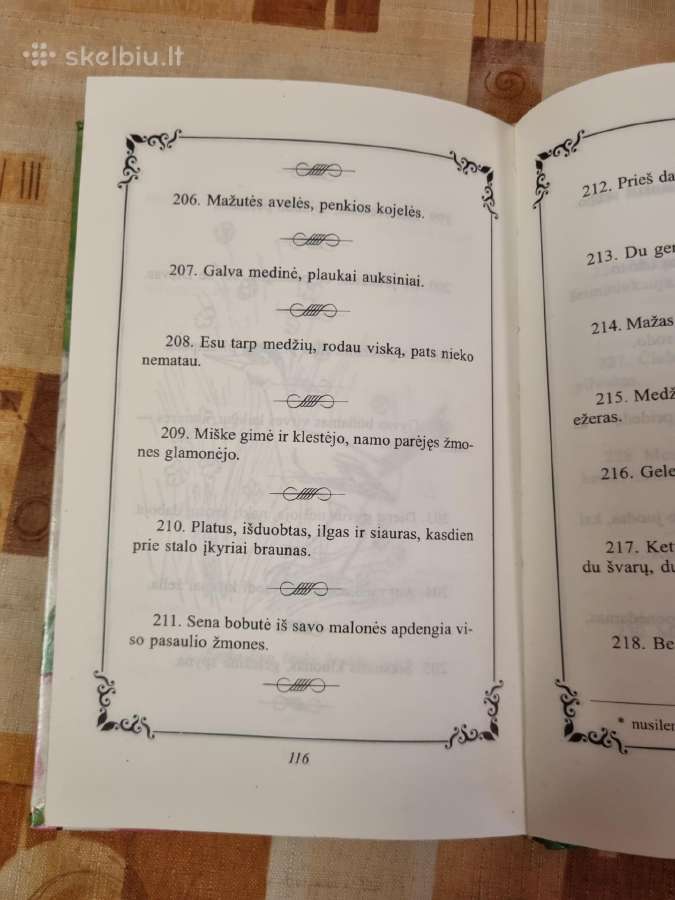 skelbiu.lt
206. Mažutės avelės, penkios kojelės.
207. Galva medinė, plaukai auksiniai.
208. Esu tarp medžių, rodau viską, pats nieko
nematau.
209. Miške gimė ir klestėjo, namo parėjęs žmo-
nes glamonėjo.
210. Platus, išduobtas, ilgas ir siauras, kasdien
prie stalo įkyriai braunas.
211. Sena bobutė iš savo malonės apdengia vi-
so pasaulio žmones.
116
212. Prieš da
213. Du ger
214. Mažas
215. Medž
ežeras.
216. Gele
217. Ket
du švarų, du
218. Be
* nusilen